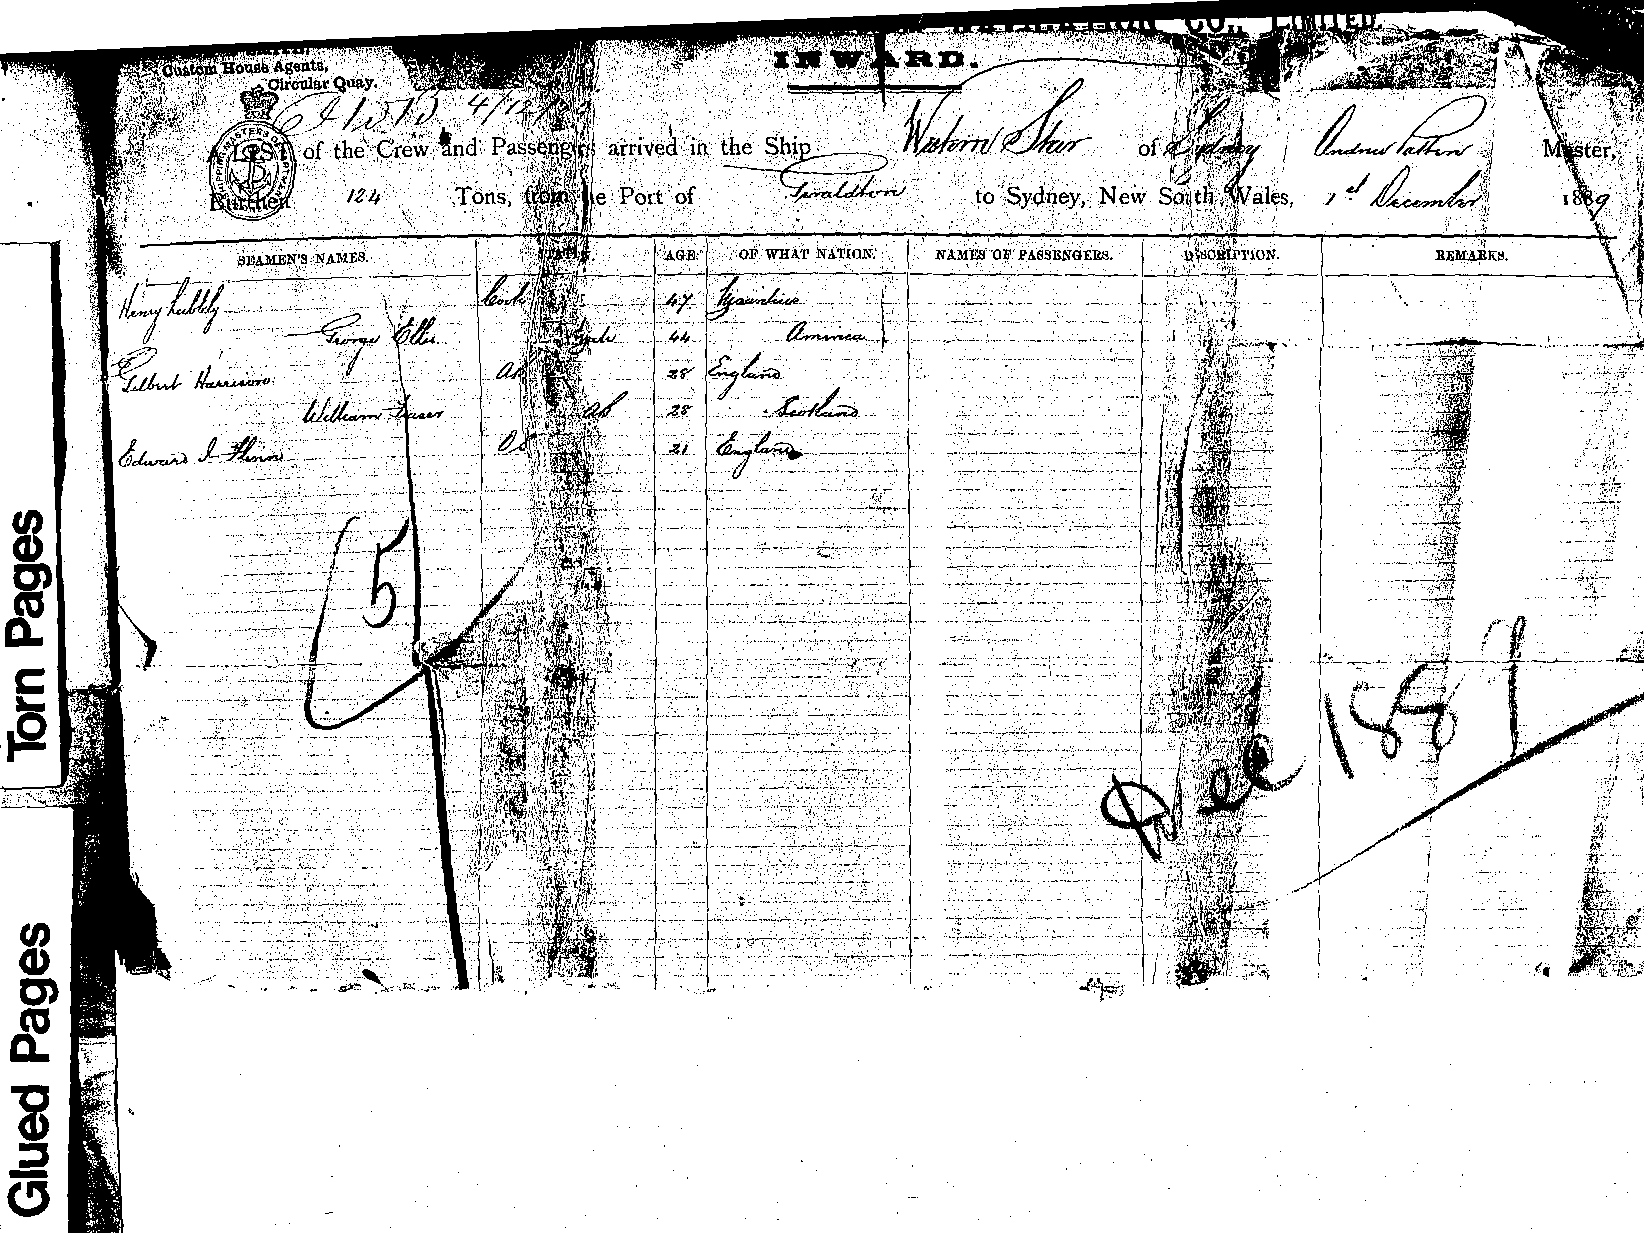 CO., LIMITED.
INWARD.
Custom House Agents,
Circular Quay.
4/12/
LIST of the Crew and Passengers arrived in the Ship Western Star of Sydney Andrew Patton Master,
Burthen 124 Tons, from the Port of Geraldton to Sydney, New South Wales, 1st December 1889
SEAMEN'S NAMES. STATION. AGE OF WHAT NATION. NAMES OF PASSENGERS. DISCRIPTION. REMARKS.
Henry Cook 47
George Ellis 44 America
Gilbert Harrison AB 28 England
William AB 28 Scotland
Edward OS 21 England
5
Dec 1889
Torn Pages
Glued Pages